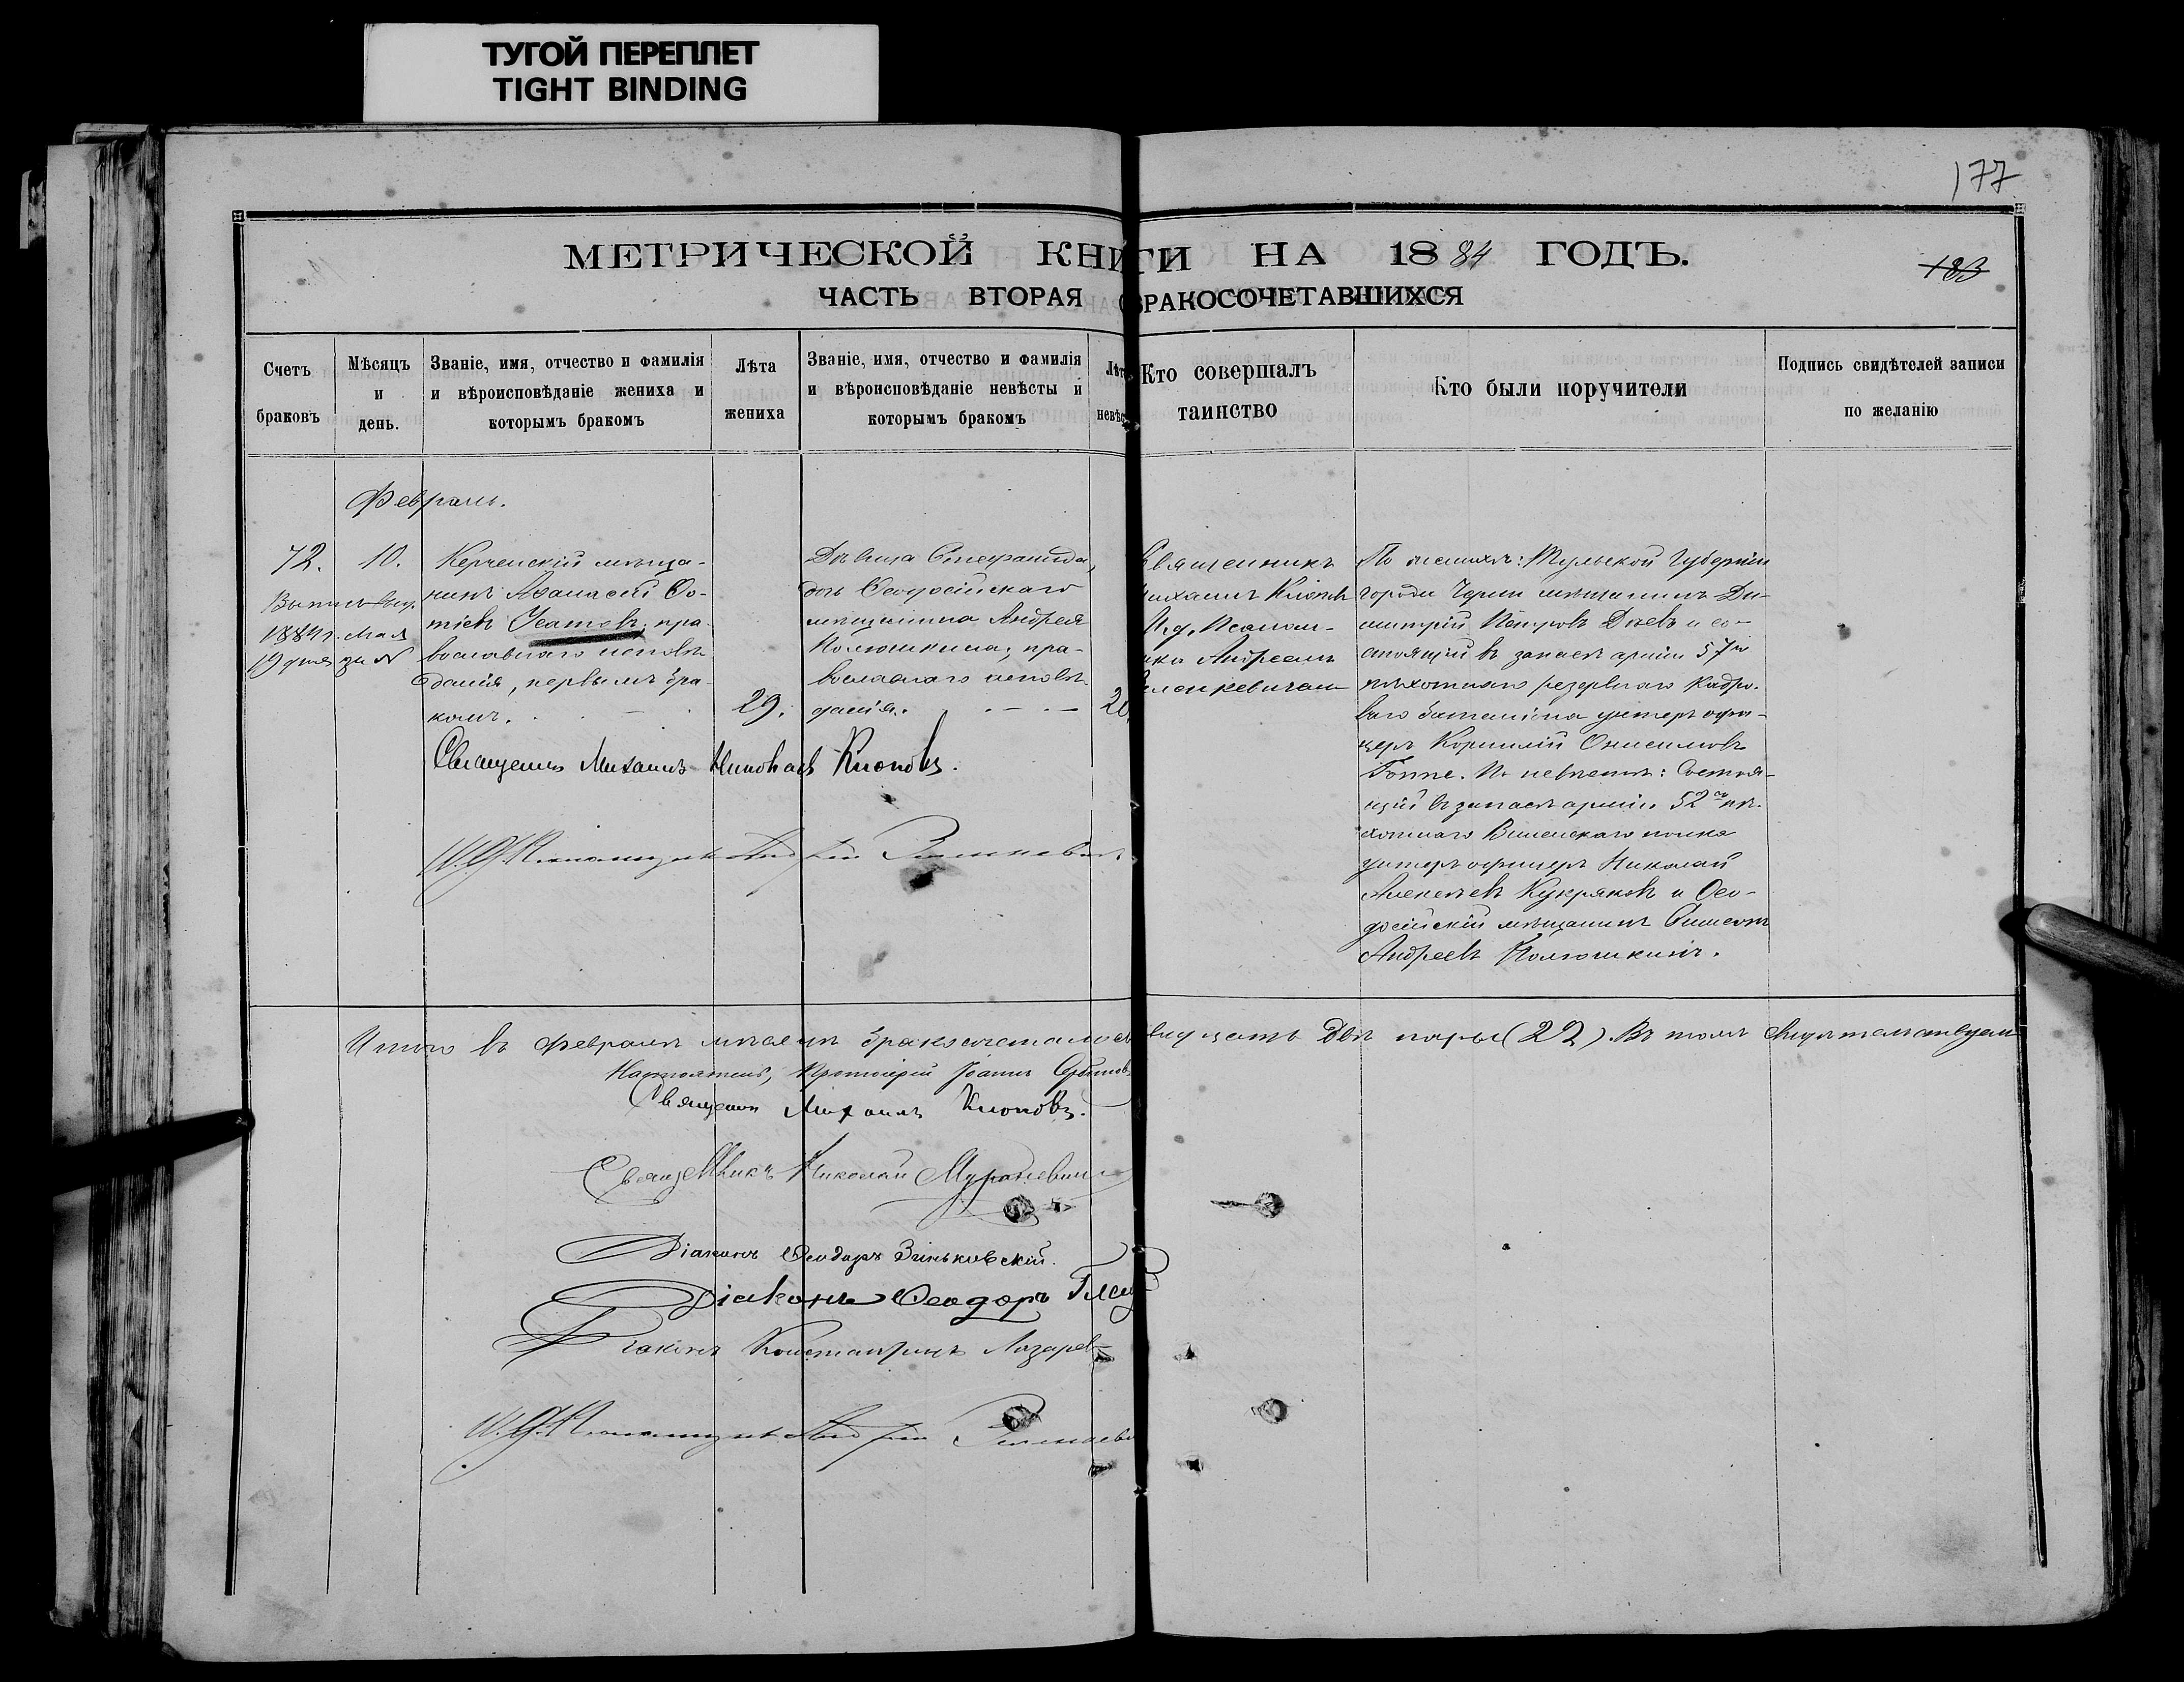 ТУГОЙ ПЕРЕПЛЕТ
TIGHT BINDING
177
МЕТРИЧЕСКОЙ КНИГИ НА 1884 ГОДЪ.
183
ЧАСТЬ ВТОРАЯ О БРАКОСОЧЕТАВШИХСЯ
Счетъ
браковъ
Мѣсяцъ
и
день.
Званіе, имя, отчество и фамилія
и вѣроисповѣданіе жениха и
которымъ бракомъ
Лѣта
жениха
Званіе, имя, отчество и фамилія
и вѣроисповѣданіе невѣсты и
которымъ бракомъ
Лѣт
невѣс
Кто совершалъ
таинство
Кто были поручители
Подпись свидѣтелей записи
по желанію
Февраль.
72.
10.
1884 г. Мая
19 дня за №
Керченскій мѣща-
нинъ Аѳанасій Ѳо-
тіевъ пра-
вославнаго исповѣ-
данія, первымъ бра-
комъ.
29.
Дѣвица Стефанида,
дочь Ѳеодосійскаго
мѣщанина Андрея
Полюшкина, пра-
вославнаго исповѣ-
данія.
20
Священникъ
Михаилъ Клоповъ
И. д. Псалом-
щика Андреемъ
По женихѣ: Тульской Губерніи
города Черни мѣщанинъ Ди-
митрій Петровъ и со-
стоящій въ запасѣ арміи 57го
пѣхотнаго резервнаго Кадро-
ваго баталіона унтеръ офи-
церъ Корнилій Онисимовъ
Гоппе. По невѣстѣ: Состоя-
щій въ запасѣ арміи 52го пѣ-
хотнаго Виленскаго полка
унтеръ офицеръ Николай
Алексѣевъ Кукряковъ и Ѳео-
досійскій мѣщанинъ
Андреевъ Полюшкинъ.
Священникъ Михаилъ Клоповъ.
И. д. Псаломщика Андрей
Итого въ Февралѣ мѣсяцѣ бракосочеталось двадцать двѣ пары (22). Въ томъ свидѣтельствуемъ
Настоятель, Протоіерей Іоаннъ
Священникъ Михаилъ Клоповъ.
Священникъ Николай
Діаконъ Ѳеодоръ Зѣньковскій.
Діаконъ Ѳеодоръ
Діаконъ Константинъ Лазарев
И. д. Псаломщика Андрей